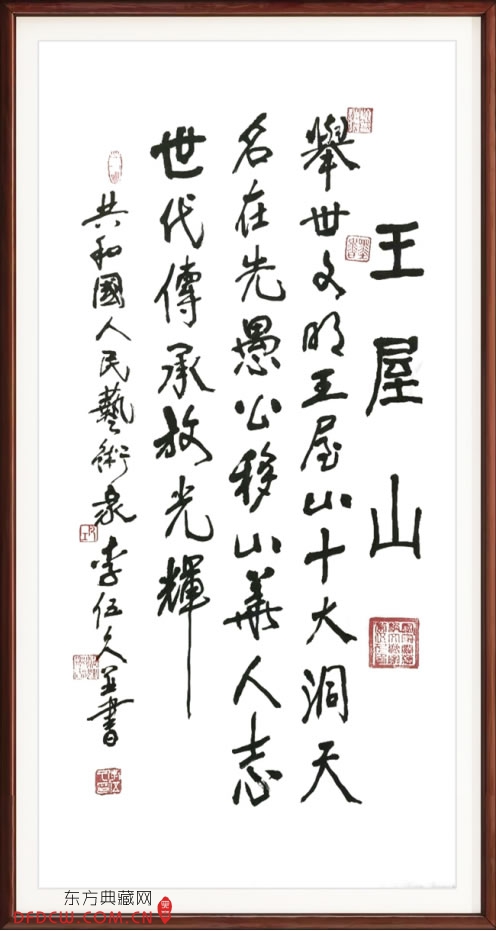 王屋山
舉世文明王屋山十大洞天
名在先愚公移山華人志
世代傳承放光輝
共和國人民藝術家李伍久並書
东方典藏网
DFDCW.COM.CN